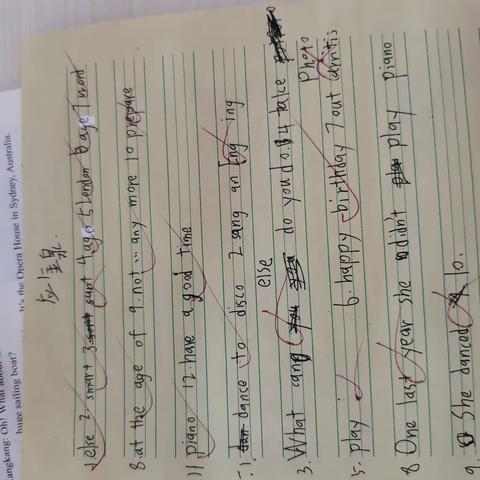 1 else 2. smart 3. sunt 4 ago 5 London 6 age 7 word
8. at the age of 9. not ... any more 10 prepare
11 piano 12. have a good time
二. 1. dance to disco 2 sang an Eng ing
else
3. What can do you do. 4 take photo
5. play 6. happy birthday 7 out
8 One last year she didn't play piano
9. She danced 10.
It's the Opera House in Sydney, Australia.
angkang: Oh! What about
huge sailing boat?